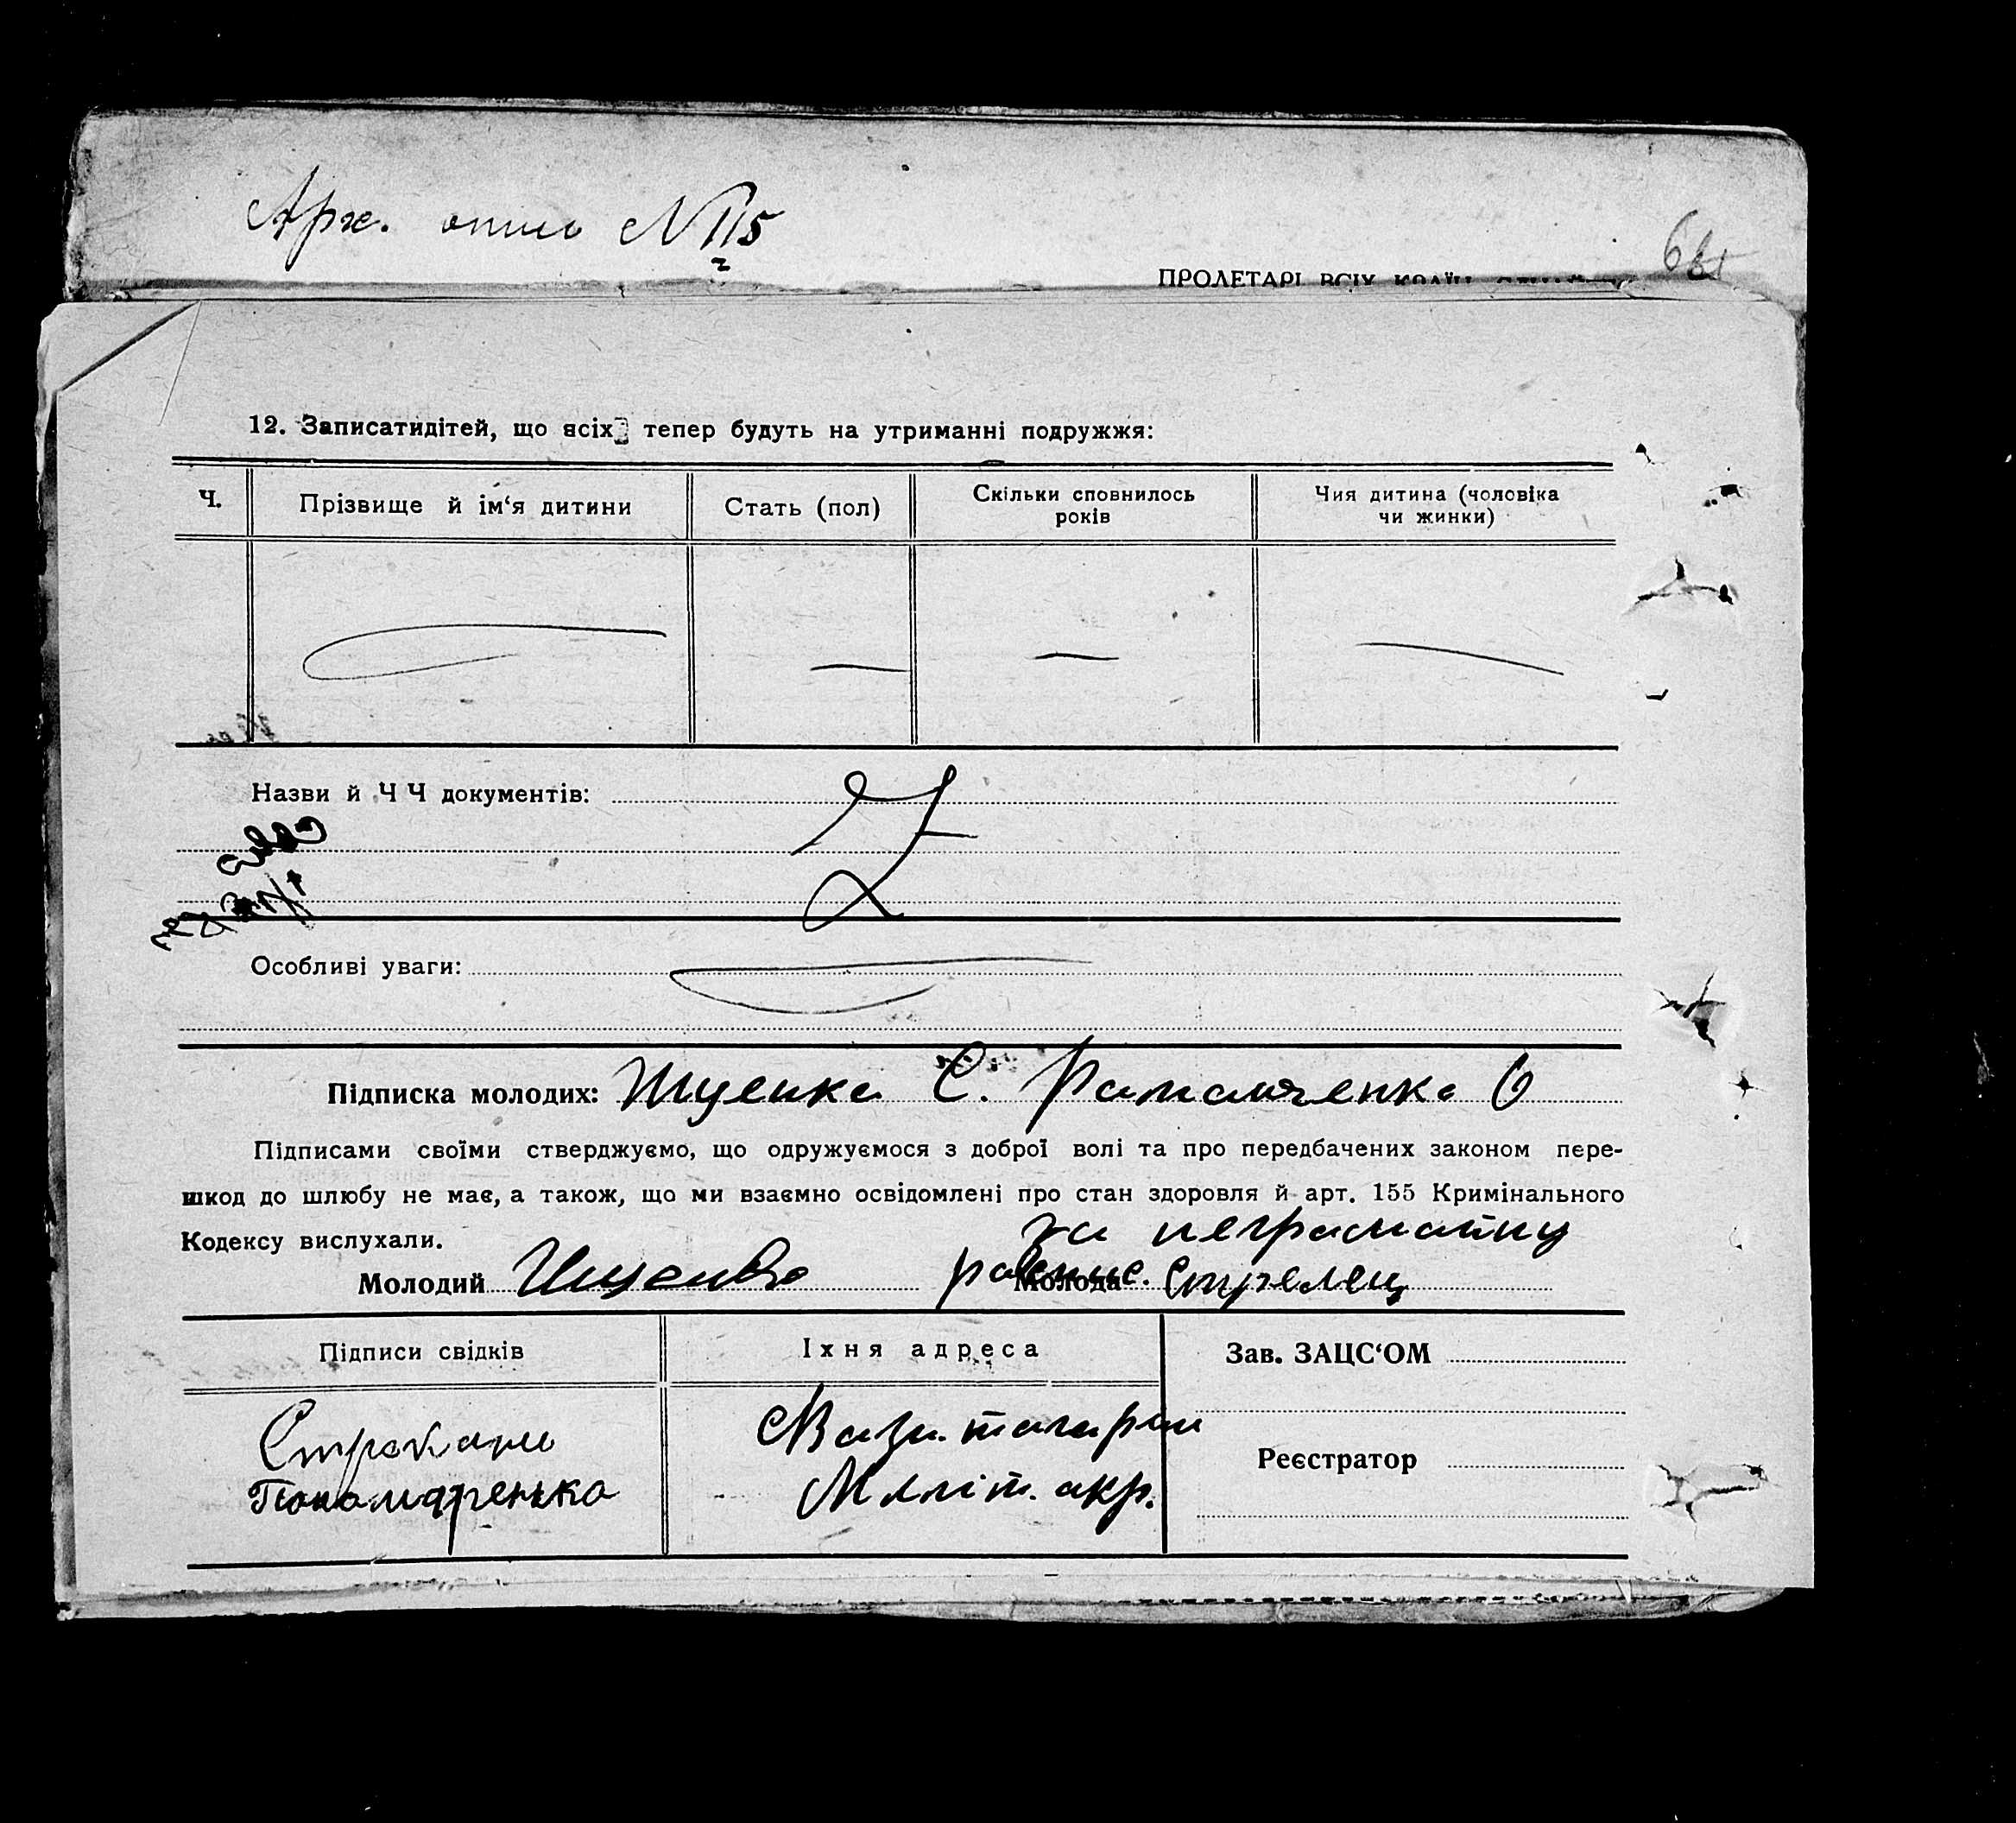 Арх. опись № 115
2
ПРОЛЕТАРІ ВСІХ КРАЇН
12. Записатидітей, що всіх тепер будуть на утриманні подружжя:
Ч.
Прізвище й ім‘я дитини
Стать (пол)
Скільки сповнилось
років
Чия дитина (чоловіка
чи жинки)
Назви й Ч Ч документів:
Особливі уваги:
Підписка молодих: Ищенко С. О
Підписами своїми стверджуємо, що одружуємося з доброї волі та про передбачених законом пере-
шкод до шлюбу не має, а також, що ми взаємно освідомлені про стан здоровля й арт. 155 Кримінального
Кодексу вислухали.
за неграмотну
Молодий Ищенко Молода Стрелец
Підписи свідків
Їхня адреса
Зав. ЗАЦС‘ОМ
Пономаренко
Реєстратор